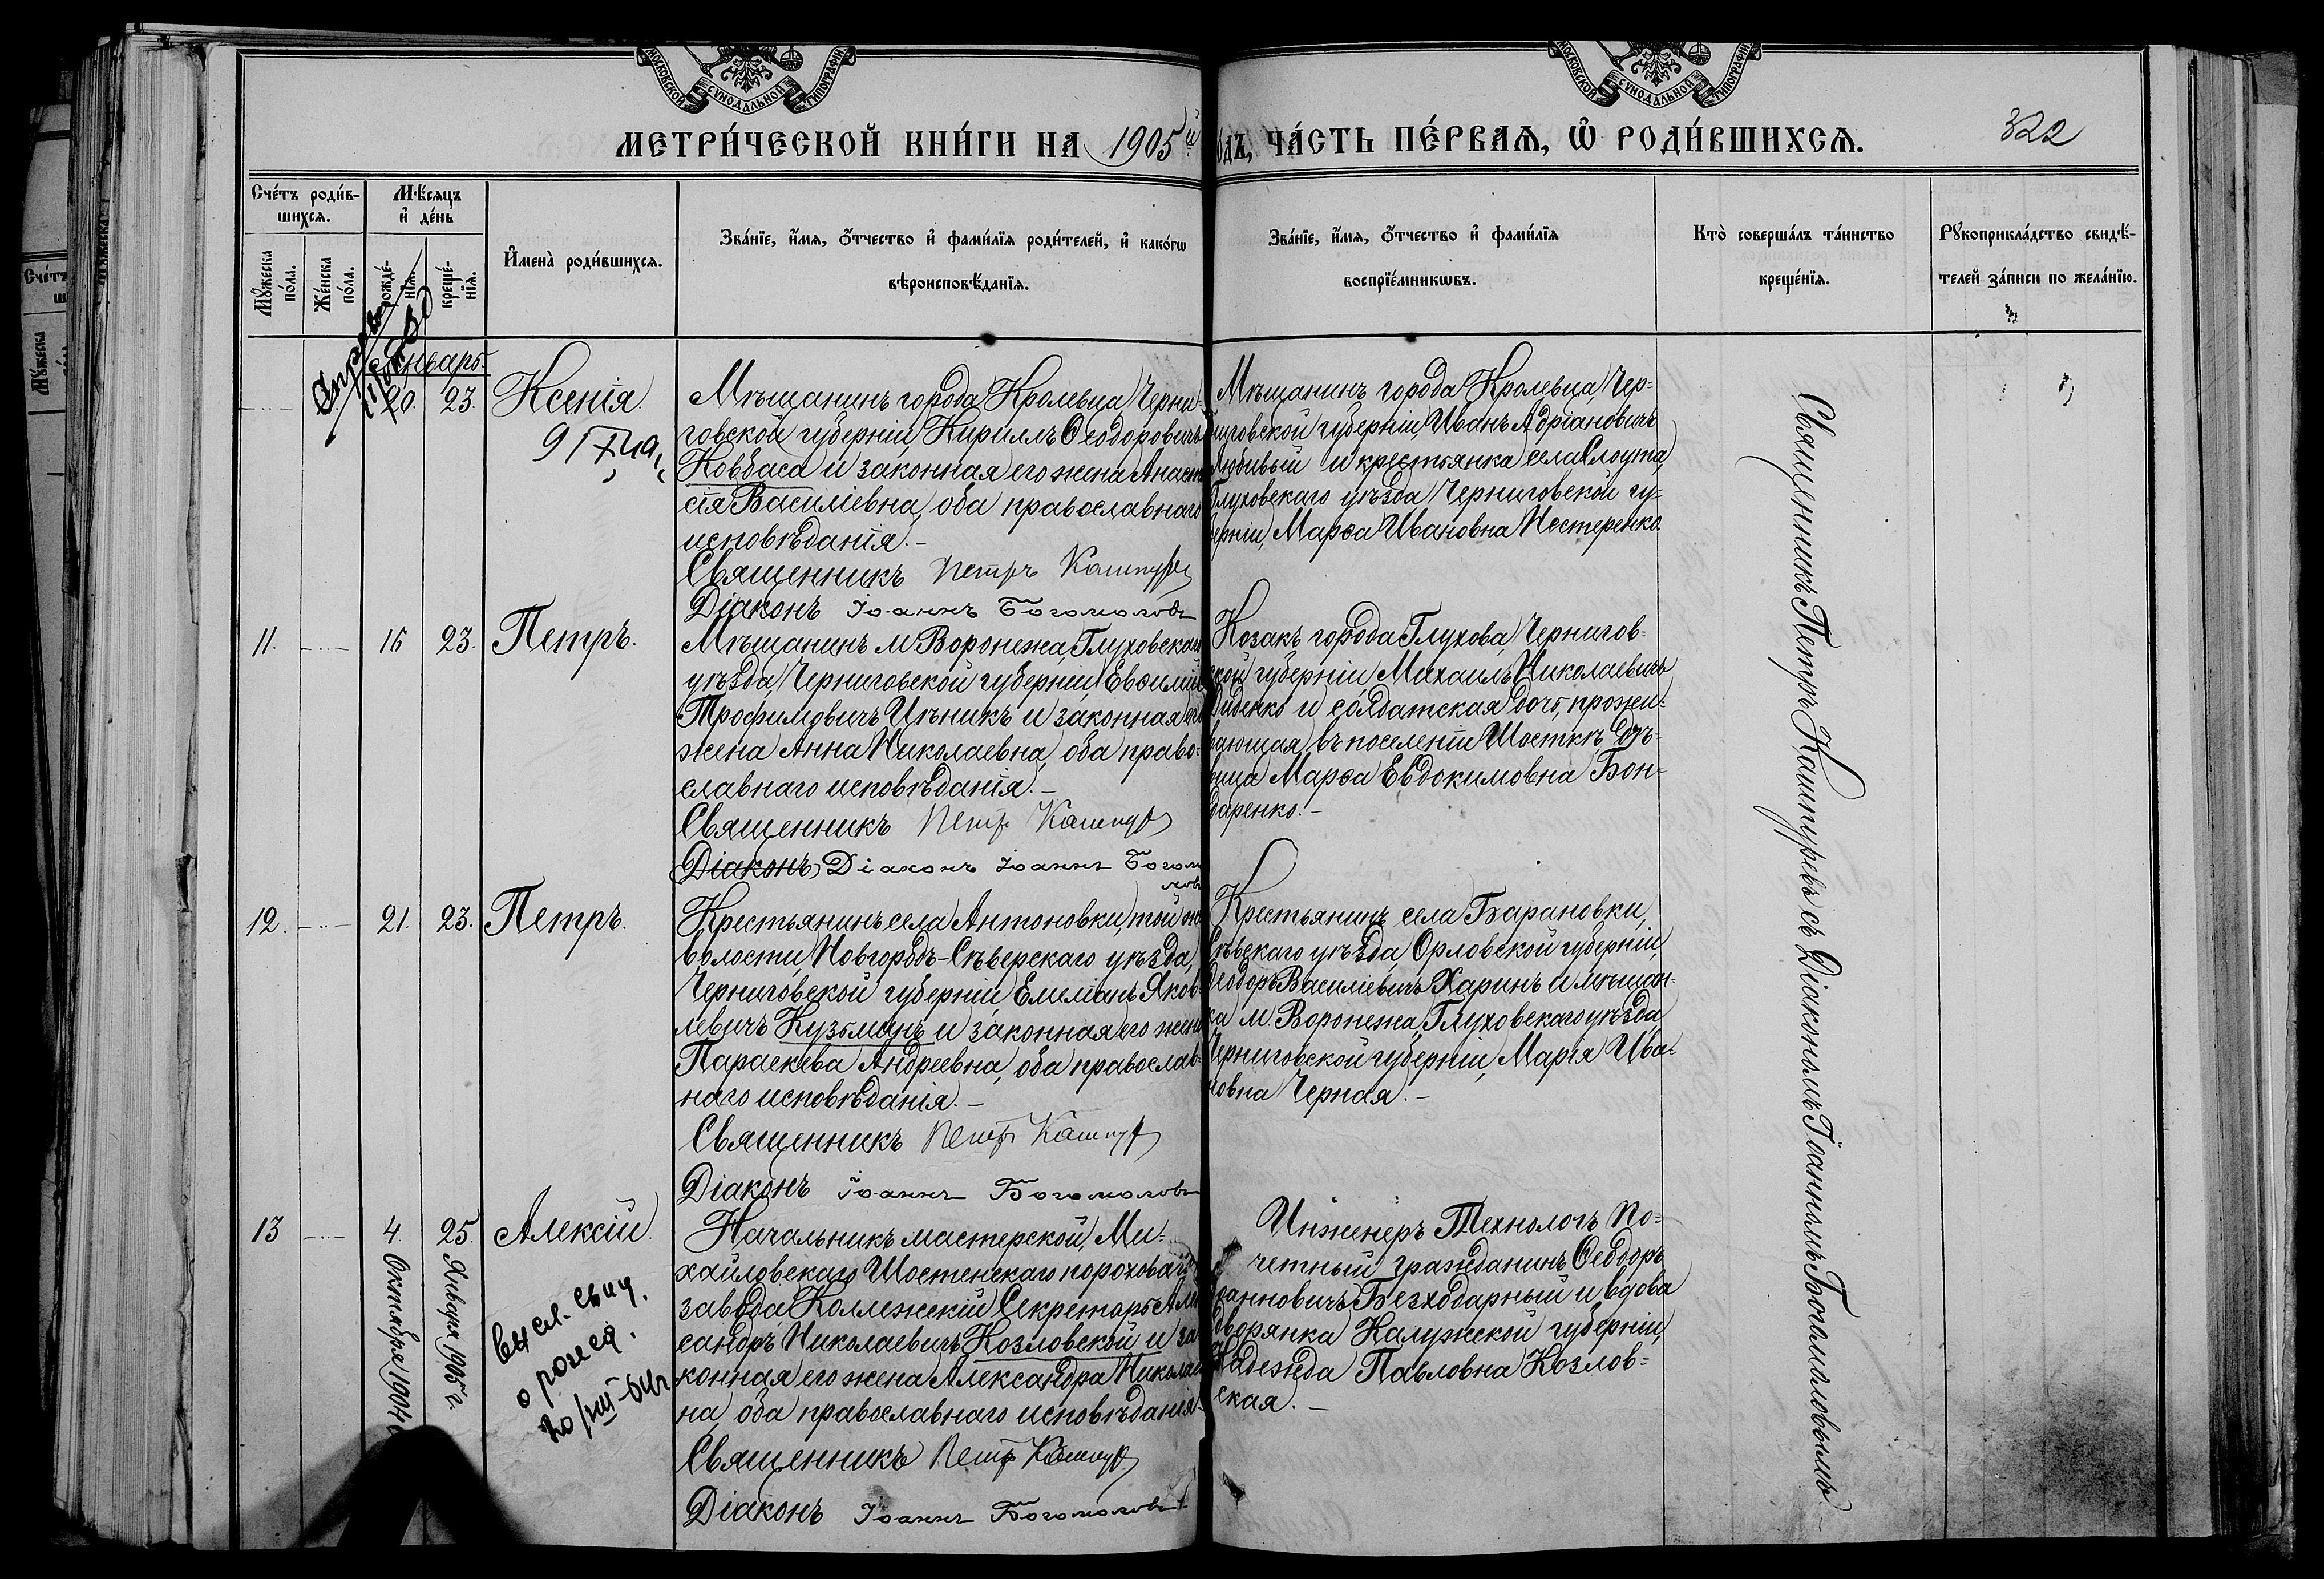 МОСКОВСКОЙ СѴНОДАЛЬНОЙ ТИПОГРАФІИ
МОСКОВСКОЙ СѴНОДАЛЬНОЙ ТИПОГРАФІИ
МЕТРИ́ЧЕСКОЙ КНИ́ГИ НА 1905й
ЧА́СТЬ ПЕ́РВАЯ, Ѡ҆ РОДИ́ВШИХСЯ.
322
Сче́тъ роди́в-
шихся.
Мѣ́сяцъ
и҆ де́нь
Мꙋ́жеска
по́ла.
Же́нска
по́ла.
рожде́-
нїя.
креще́-
нїя.
И҆мена̀ роди́вшихся.
Зва́нїе, и҆́мя, ѻ҆́тчество и҆ фами́лїя роди́телей, и҆ како́гѡ
вѣроисповѣ́данїя.
Зва́нїе, и҆́мя, ѻ҆́тчество и҆ фами́лїя
воспрїе́мникѡвъ.
Кто̀ соверша́лъ та́инство
креще́нїя.
Рꙋкоприкла́дство свидѣ́-
телей за́писи по жела́нїю.
Январь
20. 23. Ксенія.
Мѣщанинъ города Кролевца, Черни-
говской губерніи, Кириллъ Ѳеодоровичъ
Ковбаса и законная его жена Анаста
сія Василіевна, оба православнаго
исповѣданія.-
Священникъ Петръ Кашпуре
Діаконъ Іоаннъ Богомоловъ
Мѣщанинъ города Кролевца, Чер-
ниговской губерніи, Иванъ Адріановичъ
Любивый и крестьянка села Слоута,
Глуховскаго уѣзда, Черниговской гу-
берніи, Марѳа Ивановна Нестеренко
11. 16 23. Петръ.
Мѣщанинъ м. Воронежа, Глуховскаго
уѣзда, Черниговской губерніи, Евѳимій
Трофимовичъ и законная его
жена Анна Николаевна, оба право-
славнаго исповѣданія.-
Священникъ Петр Кашпур
Діаконъ Діаконъ Іоаннъ Богомо
ловъ
Козакъ города Глухова, Чернигов-
ской губерніи, Михаилъ Николаевичъ
Диденко и солдатская дочь, прожи-
вающая въ поселеніи Шосткѣ, дѣ-
вица Марѳа Евдокимовна Бон-
даренко.-
12. 21. 23. Петръ.
Крестьянинъ села Антоновки, той же
волости, Новгородъ-Сѣверскаго уѣзда,
Черниговской губерніи, Емеліанъ Яков-
левичъ Кузьминъ и законная его жена
Параскева Андреевна, оба православ-
наго исповѣданія.-
Священникъ Петр Кашпур
Діаконъ Іоаннъ Богомоловъ
Крестьянинъ села Барановки,
Сѣвскаго уѣзда, Орловской губерніи,
Ѳеодоръ Василіевичъ Харинъ и мѣщан-
ка м. Воронежа, Глуховскаго уѣзда,
Черниговской губерніи, Марія Ива-
новна Черная.-
13 4. 25. Алексій.
Октября 1904
Января 1905 г.
о рожд.
Начальникъ мастерской, Ми-
хайловскаго Шостенскаго пороховаго
завода, Коллежскій Секретарь Алек
сандръ Николаевичъ Козловской и за
конная его жена Александра Николаев
на, оба православнаго исповѣданія.
Священникъ Петр Кашпур
Діаконъ Іоаннъ Богомоловъ
Инженеръ Технологъ По-
четный гражданинъ Ѳеодоръ
Іоанновичъ Безходарный и вдова
дворянка Калужской губерніи,
Надежда Павловна Козлов-
ская.-
Священникъ Петръ Кашпуревъ съ Діакономъ Іоанномъ Богомоловымъ.-